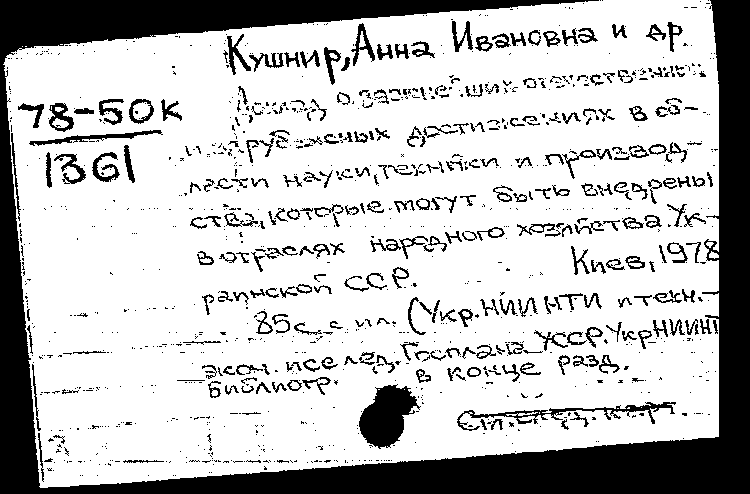 Кушнир, Анна Ивановна и др
78-50К
1361
Доклад о важнейших отечественных
и зарубежных достижениях в об-
ласти науки, техники и производ-
ства, которые могут быть внедрены
в отраслях народного хозяйства Ук-
раинской ССР. Киев, 1978
85 с. с ил. (Укр.НИИНТИ и техн.-
экон. исслед. Госплана УССР. УкрНИИНТИ
Библиогр. в конце разд.
См.след.карт.